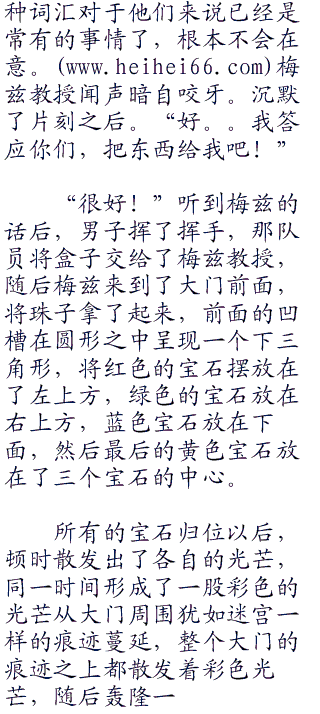 种词汇对于他们来说已经是
常有的事情了，根本不会在
意。(www.heihei66.com)梅
兹教授闻声暗自咬牙。沉默
了片刻之后。“好。。我答
应你们，把东西给我吧！”
“很好！”听到梅兹的
话后，男子挥了挥手，那队
员将盒子交给了梅兹教授，
随后梅兹来到了大门前面，
将珠子拿了起来，前面的凹
槽在圆形之中呈现一个下三
角形，将红色的宝石摆放在
了左上方，绿色的宝石放在
右上方，蓝色宝石放在下
面，然后最后的黄色宝石放
在了三个宝石的中心。
所有的宝石归位以后，
顿时散发出了各自的光芒，
同一时间形成了一股彩色的
光芒从大门周围犹如迷宫一
样的痕迹蔓延，整个大门的
痕迹之上都散发着彩色光
芒，随后轰隆一